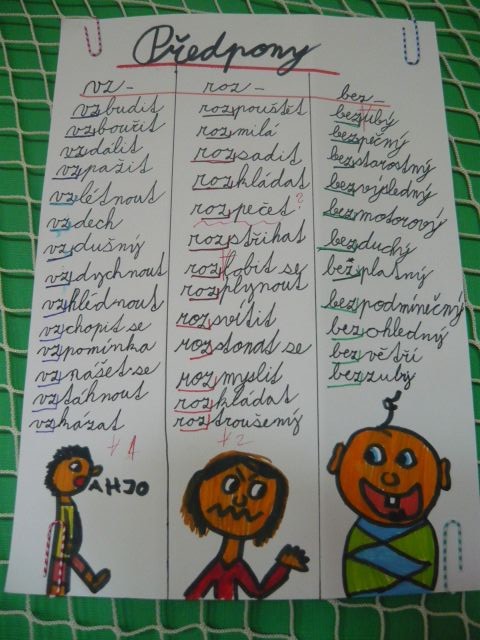 Předpony
vz-
vzbudit
vzbouřit
vzdálit
vzpažit
vzlétnout
vzdech
vzdušný
vzdychnout
vzhlédnout
vzchopit se
vzpomínka
vznášet se
vztáhnout
vzkázat
1
AHJO
roz-
rozpouštět
rozmilá
rozsadit
rozkládat
rozpečet?
rozstříhat
rozplynout
rozsvítit
rozstonat se
rozmyslit
rozkládat
roztroušený
2
bez-
bezubý
bezpečný
bezstarostný
bezvýsledný
bezmotorový
bezduchý
bezplatný
bezpodmínečný
bezohledný
bezvětří
bezzubý